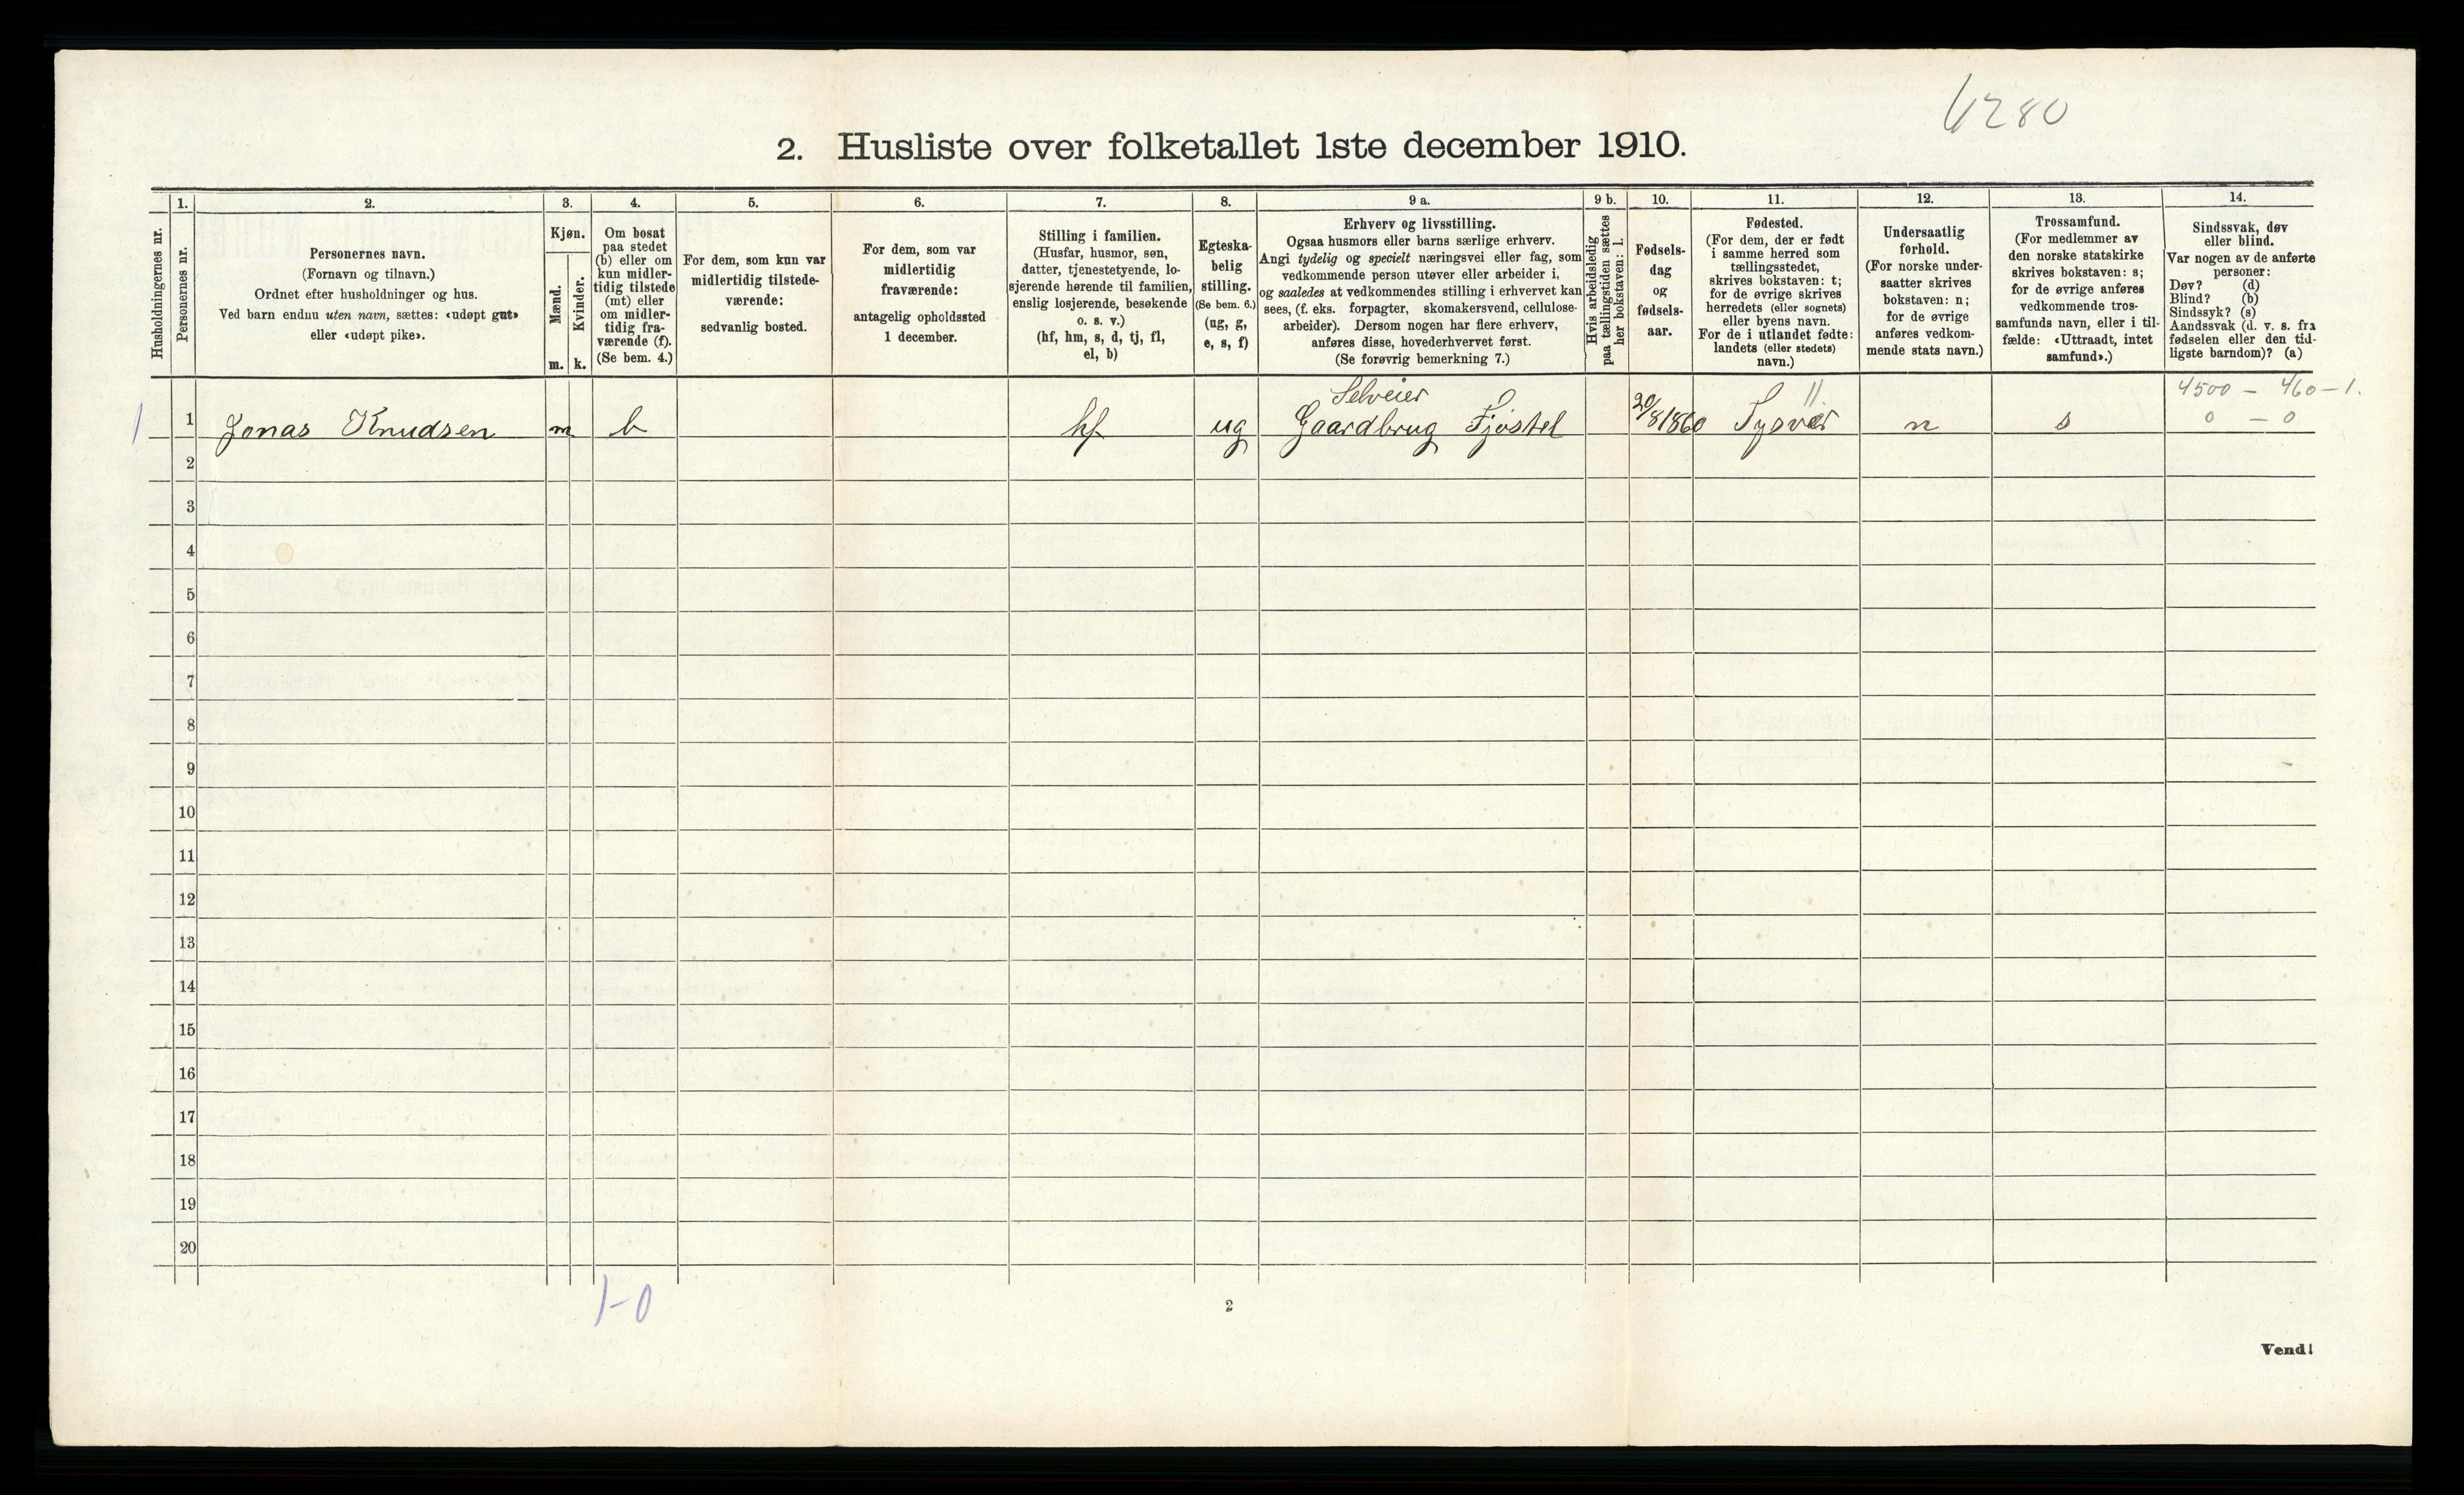 6280
2. Husliste over folketallet 1ste december 1910.
Husholdningernes nr.
1.
Personernes nr.
2.
Personernes navn.
(Fornavn og tilnavn.)
Ordnet efter husholdninger og hus.
Ved barn endnu uten navn, sættes: «udøpt gut»
eller «udøpt pike».
3.
Kjøn.
Mænd.
Kvinder.
m. k.
4.
Om bosat
paa stedet
(b) eller om
kun midler-
tidig tilstede
(mt) eller
om midler-
tidig fra-
værende (f).
(Se bem. 4.)
5.
For dem, som kun var
midlertidig tilstede-
værende:
sedvanlig bosted.
6.
For dem, som var
midlertidig
fraværende:
antagelig opholdssted
1 december.
7.
Stilling i familien.
(Husfar, husmor, søn,
datter, tjenestetyende, lo-
sjerende hørende til familien,
enslig losjerende, besøkende
o. s. v.)
(hf, hm, s, d, tj, fl,
el, b)
8.
Egteska-
belig
stilling.
(Se bem. 6.)
(ug, g,
e, s, f)
9 a.
Erhverv og livsstilling.
Ogsaa husmors eller barns særlige erhverv.
Angi tydelig og specielt næringsvei eller fag, som
vedkommende person utøver eller arbeider i,
og saaledes at vedkommendes stilling i erhvervet kan
sees, (f. eks. forpagter, skomakersvend, cellulose-
arbeider). Dersom nogen har flere erhverv,
anføres disse, hovederhvervet først.
(Se forøvrig bemerkning 7.)
9 b.
Hvis arbeidsledig
paa tællingstiden sættes
her bokstaven: l.
10.
Fødsels-
dag
og
fødsels-
aar.
11.
Fødested.
(For dem, der er født
i samme herred som
tællingsstedet,
skrives bokstaven: t;
for de øvrige skrives
herredets (eller sognets)
eller byens navn.
For de i utlandet fødte:
landets (eller stedets)
navn.)
12.
Undersaatlig
forhold.
(For norske under-
saatter skrives
bokstaven: n;
for de øvrige
anføres vedkom-
mende stats navn.)
13.
Trossamfund.
(For medlemmer av
den norske statskirke
skrives bokstaven: s;
for de øvrige anføres
vedkommende tros-
samfunds navn, eller i til-
fælde: «Uttraadt, intet
samfund».)
14.
Sindssvak, døv
eller blind.
Var nogen av de anførte
personer:
Døv? (d)
Blind? (b)
Sindssyk? (s)
Aandssvak (d. v. s. fra
fødselen eller den tid-
ligste barndom)? (a)
Selveier 4500 – 460 – 1.
1 1 Jonas Knudsen m b hf ug Gaardbrug Fjøstel 20/8 1860 Tysvær n s 0 – 0
2
3
4
5
6
7
8
9
10
11
12
13
14
15
16
17
18
19
20
1-0
2
Vend!